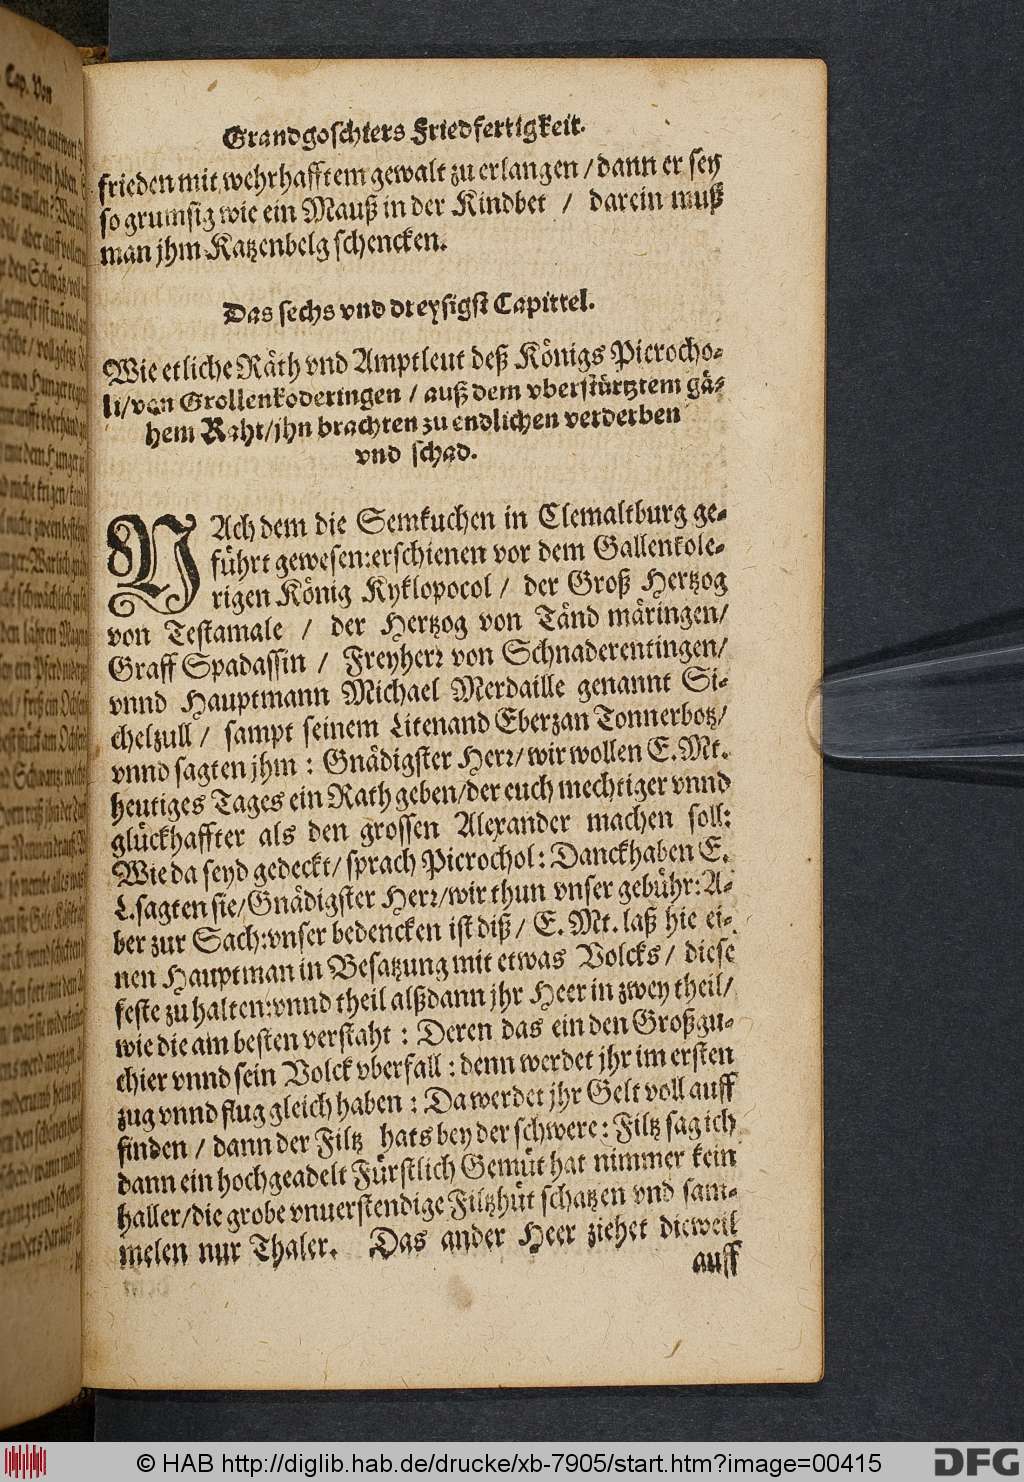 Grandgoschiers Friedfertigkeit.
frieden mit wehrhafftem gewalt zu erlangen / dann er sey
so grumsig wie ein Mauß in der Kindbet / darein muß
man jhm Katzenbelg schencken.
Das sechs vnd dreysigst Capittel.
Wie etliche Räth vnd Amptleut deß Königs Picrocho-
li/ von Grollenkoderingen / auß dem vberstürtztem gä-
hem Raht/ jhn brachten zu endlichen verderben
vnd schad.
NAch dem die Semkuchen in Clemaltburg ge-
führt gewesen: erschienen vor dem Gallenkole-
rigen König Kyklopocol / der Groß Hertzog
von Testamale / der Hertzog von Tänd märingen/
Graff Spadassin / Freyherr von Schnaderentingen/
vnnd Hauptmann Michael Merdaille genannt Si-
chelzull / sampt seinem Litenand Eberzan Tonnerbotz/
vnnd sagten jhm : Gnädigster Herr/ wir wollen E. Mt.
heutiges Tages ein Rath geben/ der euch mechtiger vnnd
glückhaffter als den grossen Alexander machen soll:
Wie da seyd gedeckt/ sprach Picrochol: Danck haben E.
L. sagten sie/ Gnädigster Herr/ wir thun vnser gebühr: A-
ber zur Sach: vnser bedencken ist diß/ E. Mt. laß hie ei-
nen Hauptman in Besatzung mit etwas Volcks / diese
feste zu halten: vnnd theil alßdann jhr Heer in zwey theil/
wie die am besten verstaht : Deren das ein den Großgu-
chier vnnd sein Volck vberfall : denn werdet jhr im ersten
zug vnnd flug gleich haben : Da werdet jhr Gelt voll auff
finden / dann der Filtz hats bey der schwere: Filtz sag ich
dann ein hochgeadelt Fürstlich Gemüt hat nimmer kein
haller/ die grobe vnuerstendige Filtzhüt schatzen vnd sam-
melen nur Thaler. Das ander Heer ziehet dieweil
auff
© HAB http://diglib.hab.de/drucke/xb-7905/start.htm?image=00415
DFG